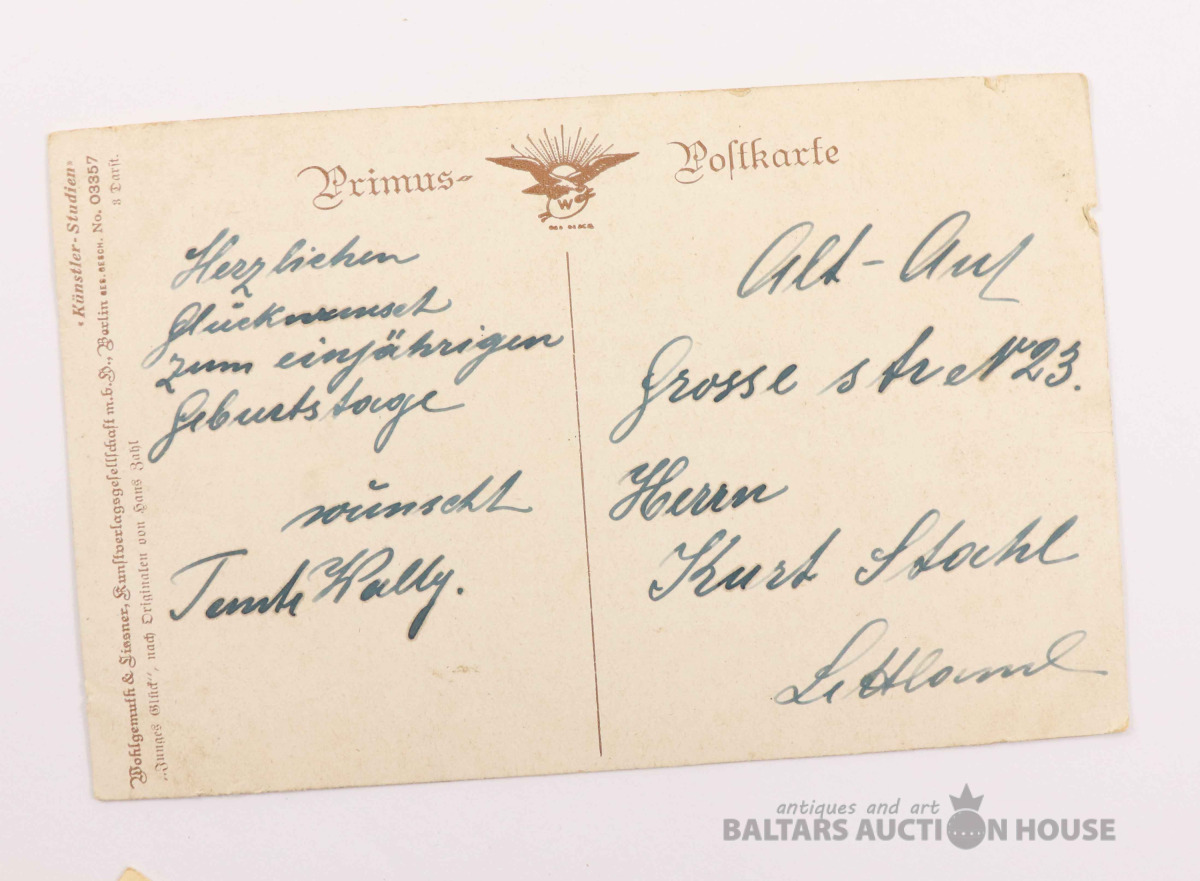 Primus- Postkarte
W
Herzlichen
Glückwunsch
zum einjährigen
Geburtstage
wünscht
Tante Wally.
Alt-Auz
Grosse str № 23.
Herrn
Kurt Stahl
Lettland
"Künstler-Studien"
Wohlgemuth & Lissner, Kunstverlagsgesellschaft m.b.H., Berlin GES. GESCH. No. 03357
"Junges Glück", nach Originalen von Hans Zahl
8 Darst.
antiques and art
BALTARS AUCTION HOUSE